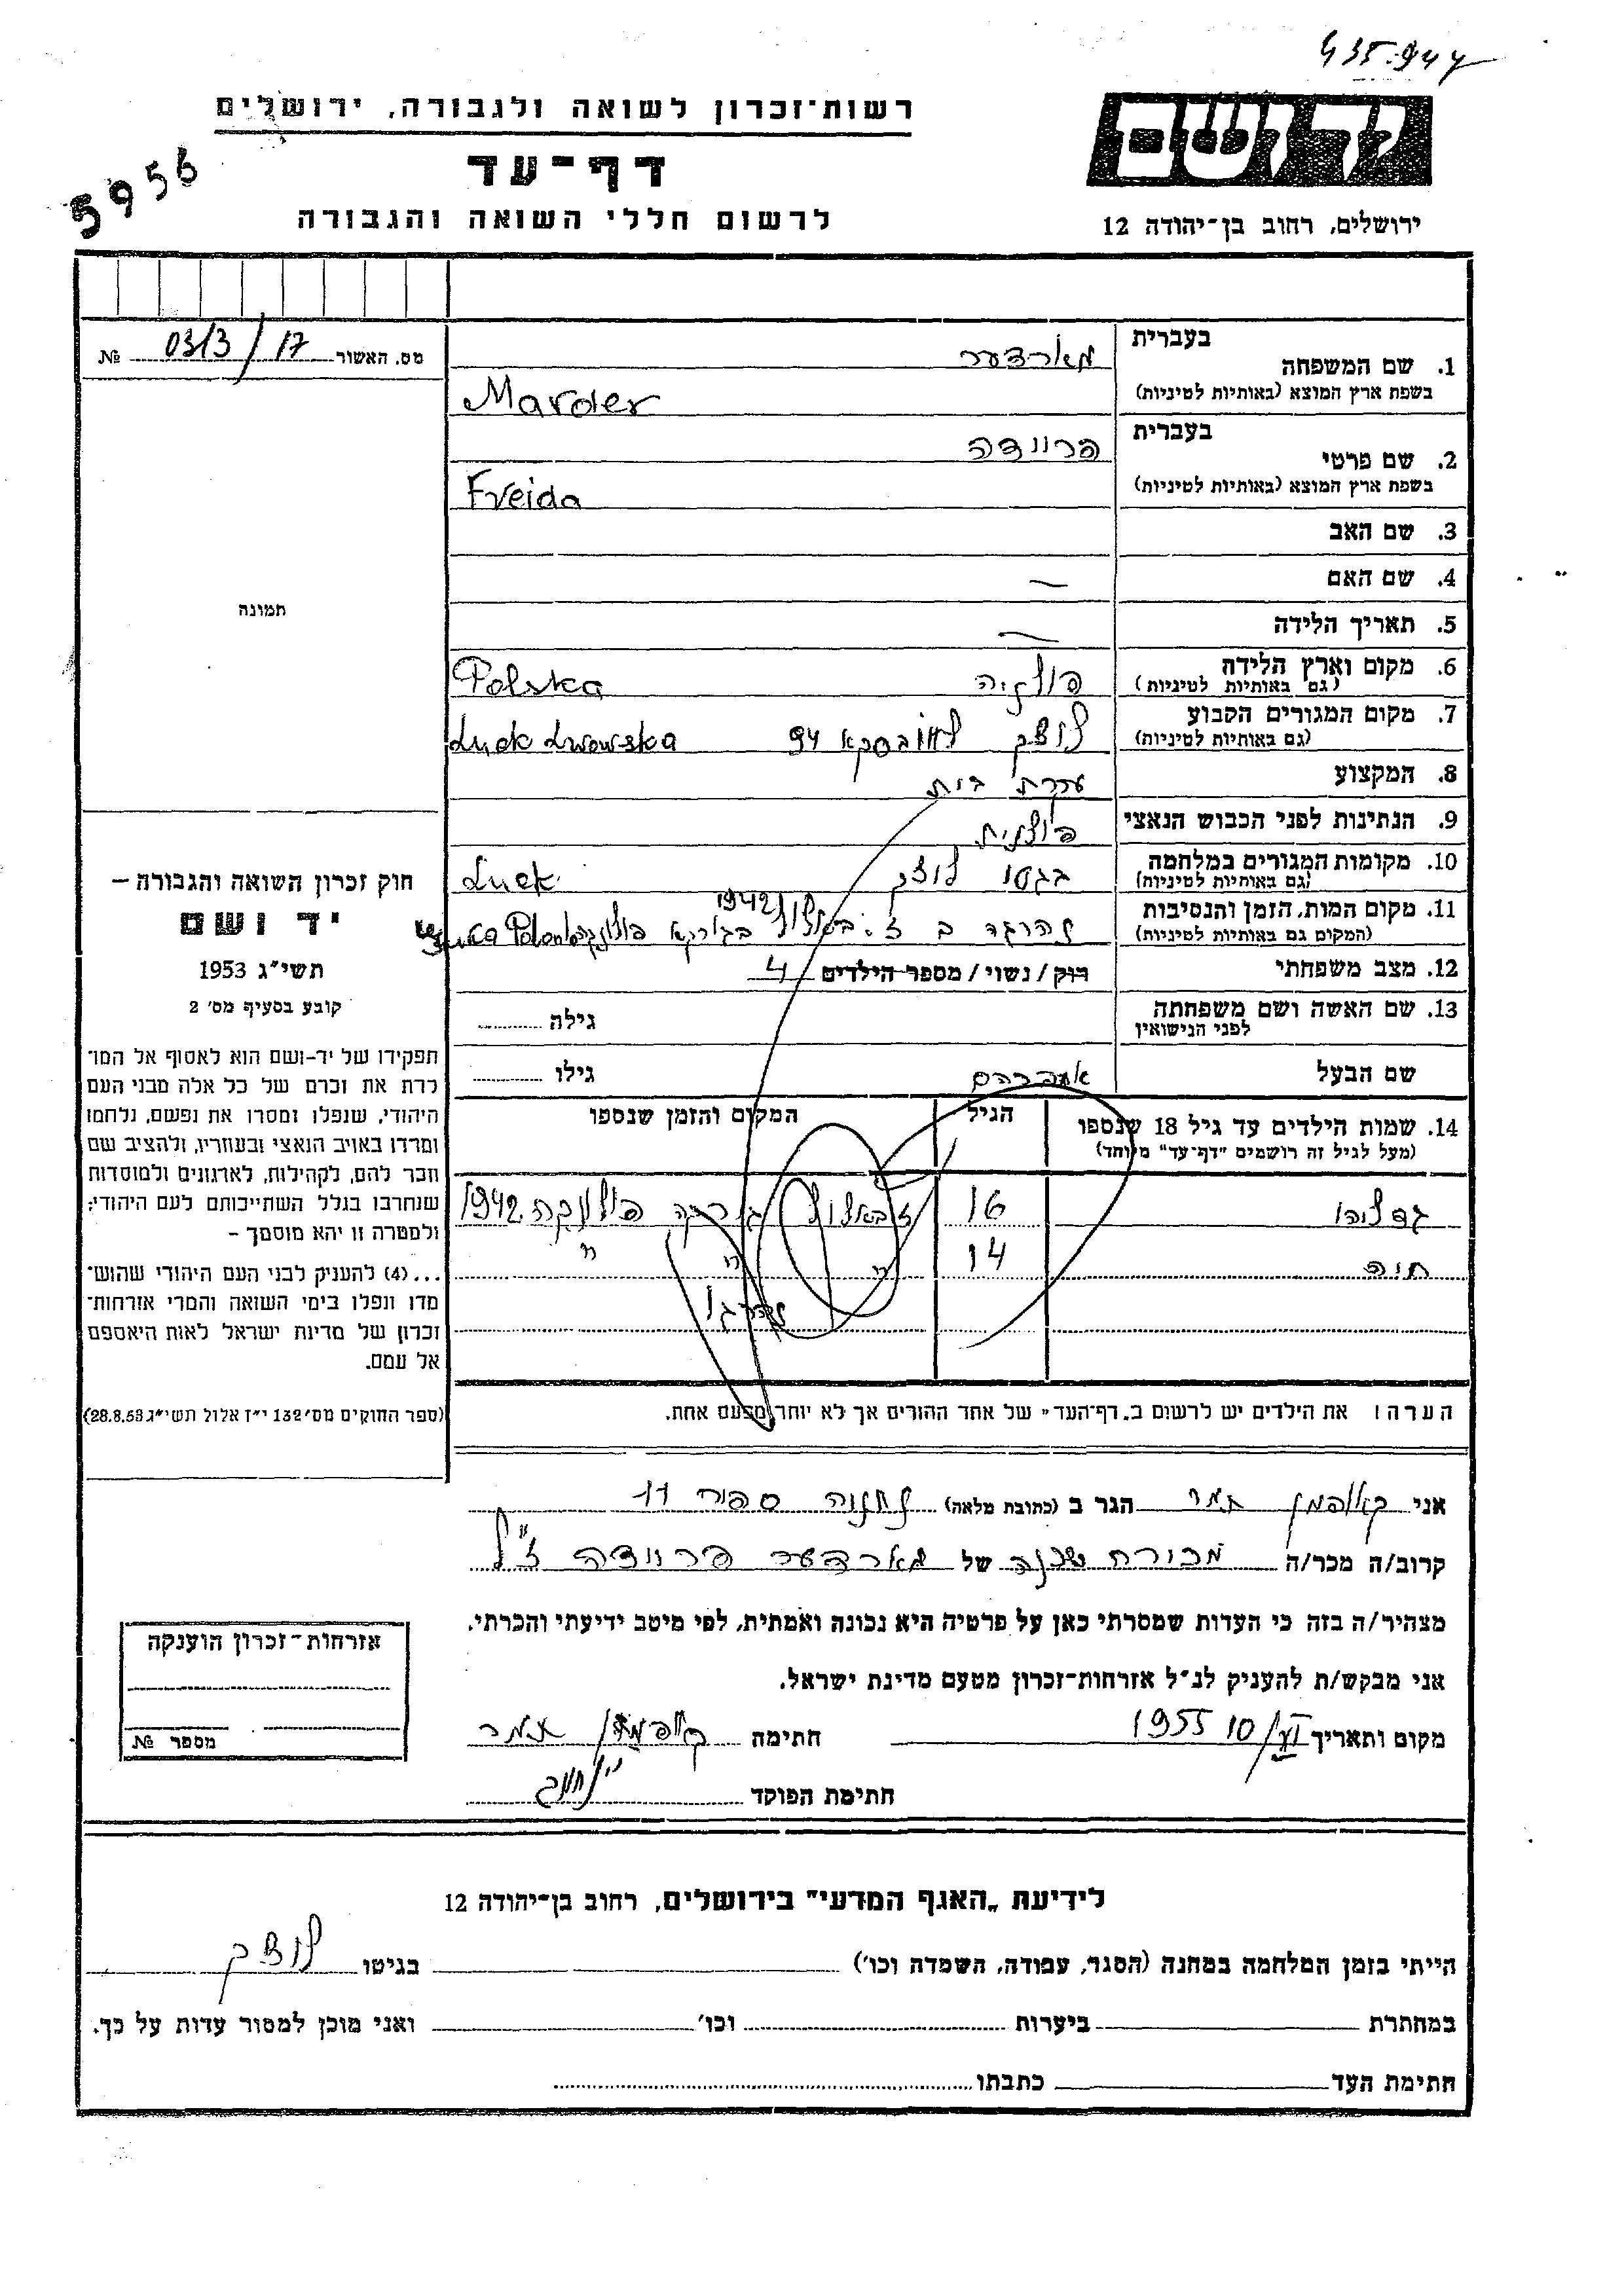 435-944
רשות־זכרון לשואה ולגבורה, ירושלים
דף־עד
לרשום חללי השואה והגבורה
5956
יד ושם
ירושלים, רחוב בן־יהודה 12
מס. האשור 17 / 0313 №
תמונה
1. שם המשפחה
בעברית מארדער
בשפת ארץ המוצא (באותיות לטיניות) Marder
2. שם פרטי
בעברית פריידה
בשפת ארץ המוצא (באותיות לטיניות) Freida
3. שם האב
4. שם האם —
5. תאריך הלידה —
6. מקום וארץ הלידה פולניה Polska
(גם באותיות לטיניות)
7. מקום המגורים הקבוע לוצק לבובסקא 94 Łuck Lwowska
(גם באותיות לטיניות)
8. המקצוע עקרת בית
9. הנתינות לפני הכבוש הנאצי פולנית
10. מקומות המגורים במלחמה בגטו לוצק Łuck
(גם באותיות לטיניות)
11. מקום המות, הזמן והנסיבות נהרגה ב בגורקא פולונקה 1942
(המקום גם באותיות לטיניות)
12. מצב משפחתי רוק / נשוי / מספר הילדים 4
13. שם האשה ושם משפחתה לפני הנישואין גילה
שם הבעל אברהם גילו
14. שמות הילדים עד גיל 18 שנספו הגיל המקום והזמן שנספו
(מעל לגיל זה רושמים "דף־עד" מיוחד)
גדליהו 16 גורקה פולונקה 1942
חיה 14 " " "
נהרגו
הערה: את הילדים יש לרשום ב„דף־העד" של אחד ההורים אך לא יותר מפעם אחת.
חוק זכרון השואה והגבורה –
יד ושם
תשי״ג 1953
קובע בסעיף מס׳ 2
תפקידו של יד-ושם הוא לאסוף אל המו־
לדת את זכרם של כל אלה מבני העם
היהודי, שנפלו ומסרו את נפשם, נלחמו
ומרדו באויב הנאצי ובעוזריו, ולהציב שם
וזכר להם, לקהילות, לארגונים ולמוסדות
שנחרבו בגלל השתייכותם לעם היהודי;
ולמטרה זו יהא מוסמך –
...(4) להעניק לבני העם היהודי שהוש־
מדו ונפלו בימי השואה והמרי אזרחות־
זכרון של מדינת ישראל לאות היאספם
אל עמם.
(ספר החוקים מס׳ 132 י״ז אלול תשי״ג 28.8.53)
אני קאופמן תמר הגר ב (כתובת מלאה) נתניה ספיר 11
קרוב/ה מכר/ה מכורת שכנה של מארדער פריידה ז״ל
מצהיר/ה בזה כי העדות שמסרתי כאן על פרטיה היא נכונה ואמתית, לפי מיטב ידיעתי והכרתי.
אני מבקש/ת להעניק לנ״ל אזרחות־זכרון מטעם מדינת ישראל.
מקום ותאריך 10/VI 1955 חתימה קאופמן תמר
חתימת הפוקד
אזרחות־זכרון הוענקה
מספר №
לידיעת „האגף המדעי" בירושלים, רחוב בן־יהודה 12
הייתי בזמן המלחמה במחנה (הסגר, עבודה, השמדה וכו׳) בגיטו לוצק
במחתרת ביערות וכו׳ ואני מוכן למסור עדות על כך.
חתימת העד כתבתו